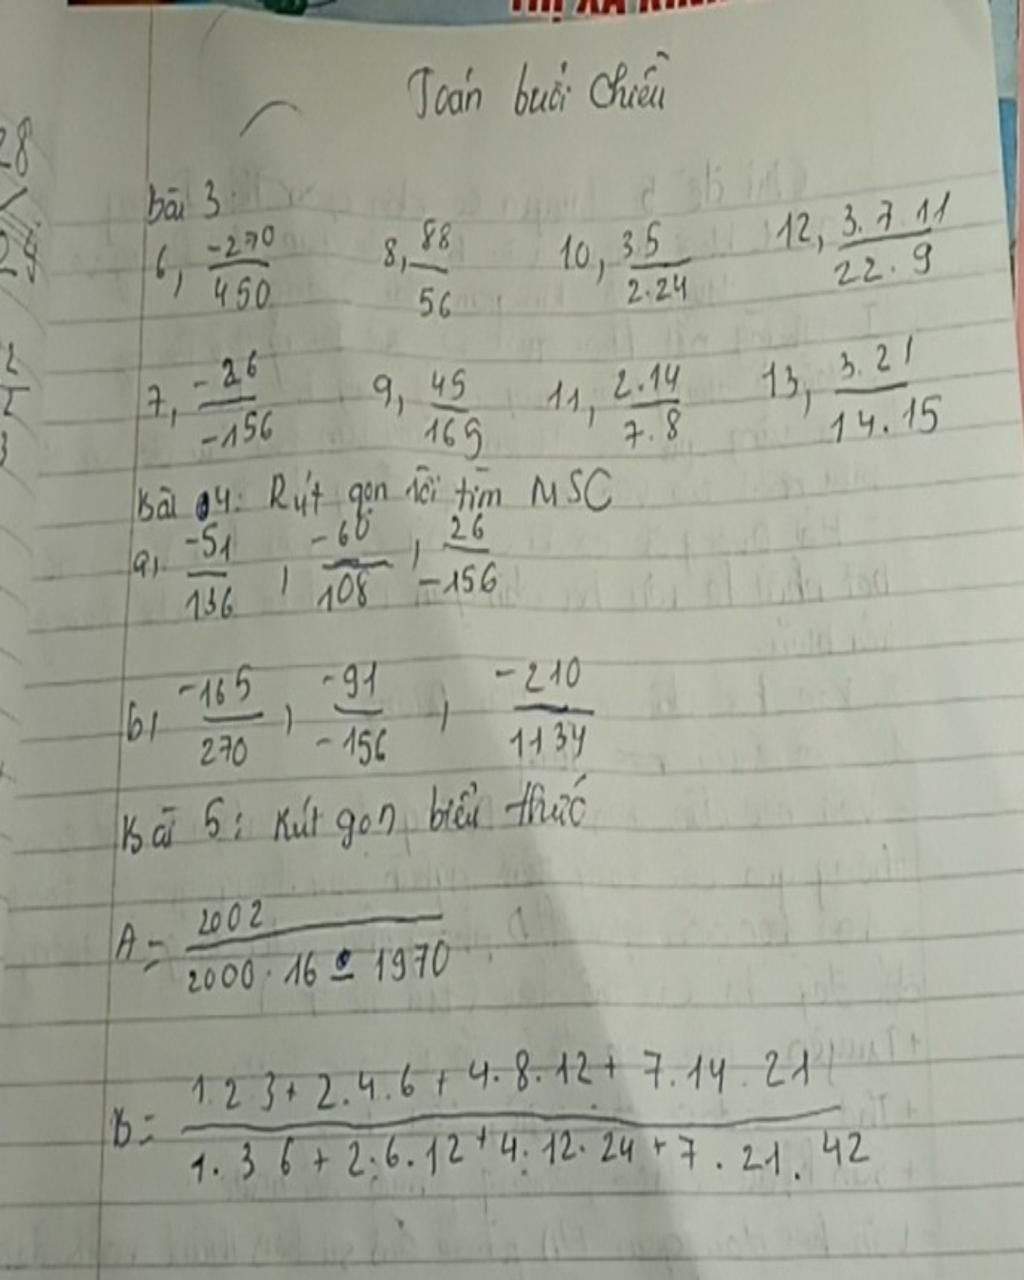 Toán buổi Chiều
bài 3:
6, -270/450 8, 88/56 10, 3.5/2.24 12, 3.7.11/22.9
7, -26/-156 9, 45/165 11, 2.14/7.8 13, 3.21/14.15
Bài 4: Rút gọn rồi tìm MSC
a, -51/136 , -60/108 , 26/-156
b, -165/270 , -91/-156 , -210/1134
Bài 5: Rút gọn biểu thức
A = 2002/2000.16 - 1970
B = 1.2.3+2.4.6+4.8.12+7.14.21/1.3.6+2.6.12+4.12.24+7.21.42